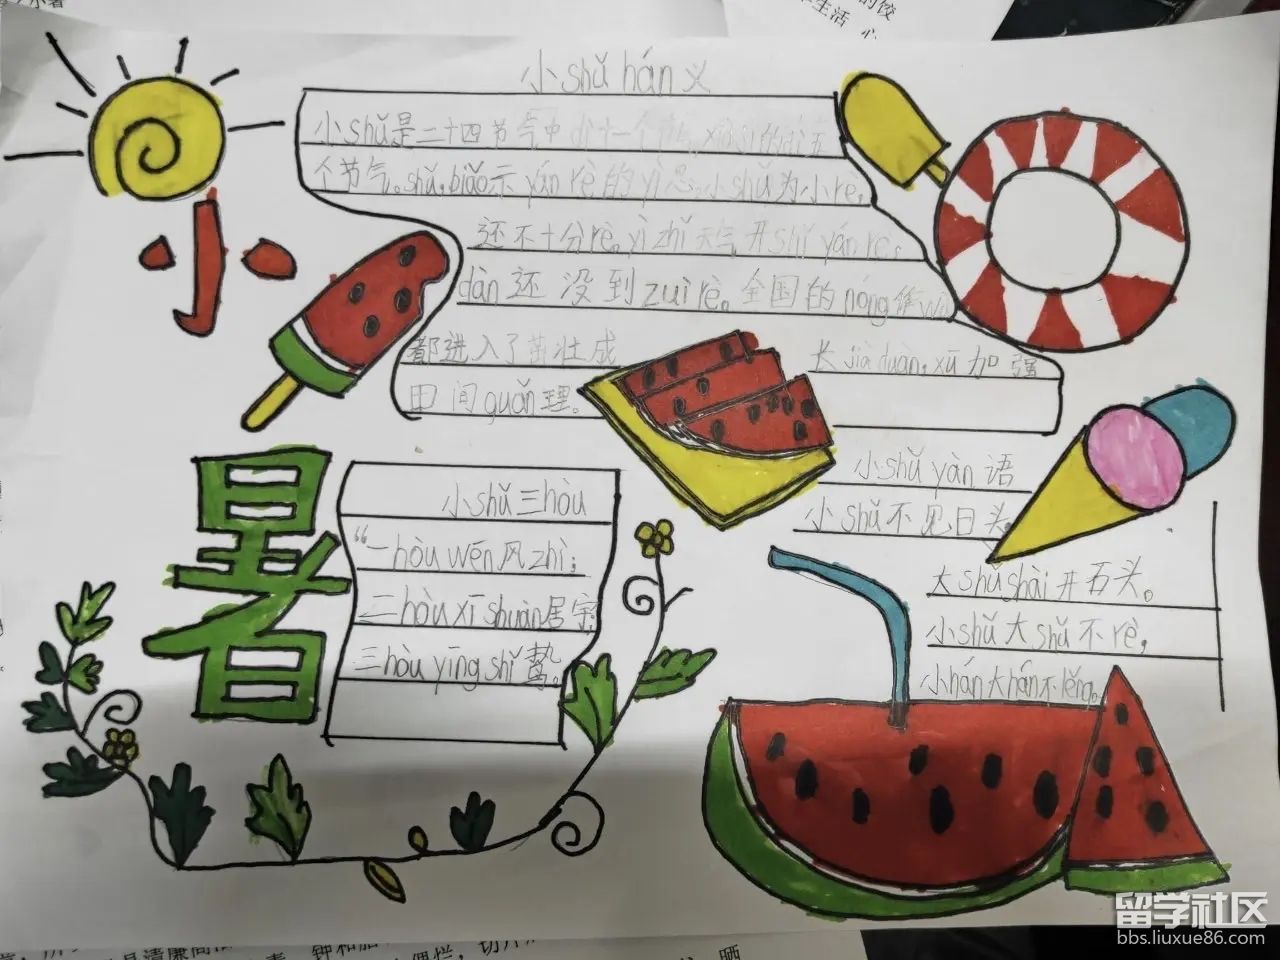 小shǔ hán义
小shǔ是二十四节气中dì十一个节气，
个节气。shǔ，biǎo示 yán rè的 yì思，小shǔ为小rè，
还不十分rè。yì zhǐ天气开shǐ yán rè，
dàn还没到zuì rè。全国的nóng作wù
都进入了茁壮成长jiē duàn，xū加强
田间guǎn理。
小
暑
小shǔ三hòu
“一hòu wēn风zhì；
二hòu xī shuài居宇；
三hòu yīng shǐ鸷。
小shǔ yàn语
小shǔ不见日头，
大shǔ shài开石头。
小shǔ大shǔ不rè，
小hán大hán不lěng。
留学社区
bbs.liuxue86.com